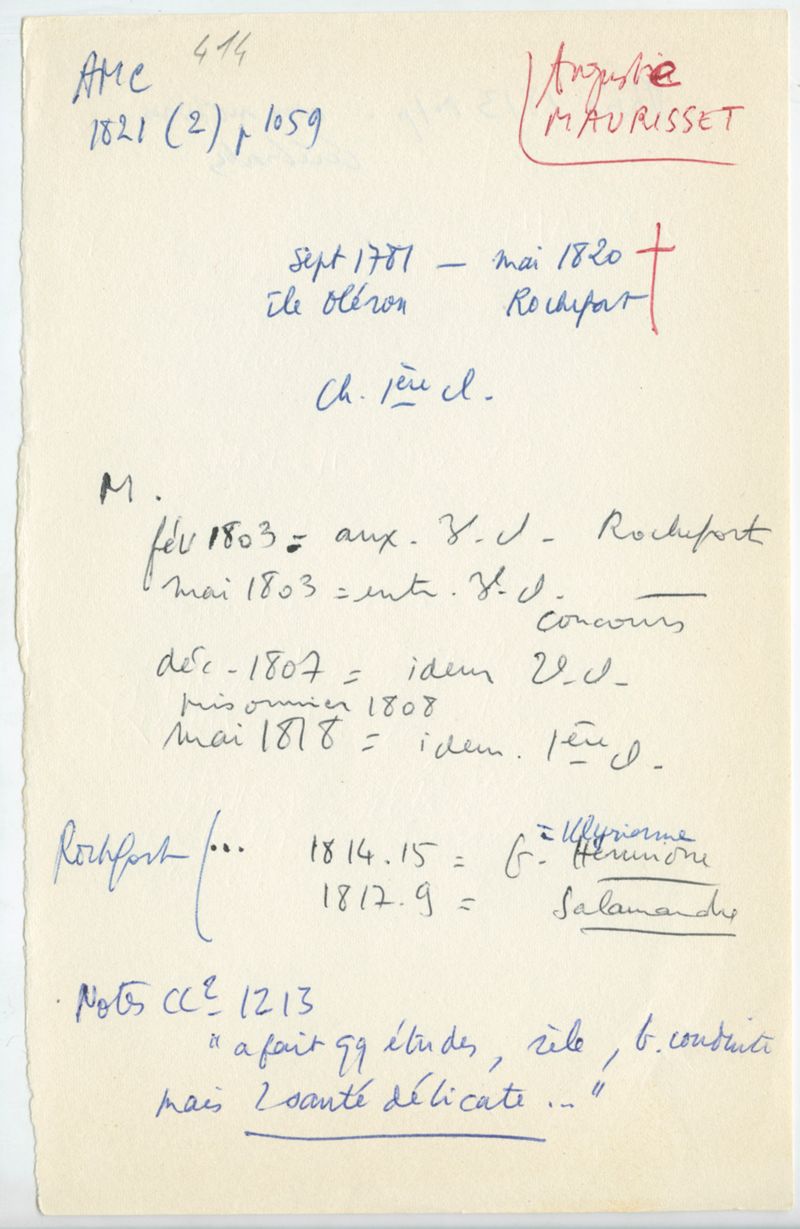 414
AMC
1821 (2) p 1059
Augustie
MAURISSET
sept 1781 — mai 1820
île Oléron Rochefort
Ch. 1ère cl.
M.
fév 1803 = aux. 3e cl - Rochefort
mai 1803 = entr. 3e cl.
concours
déc - 1807 = idem 2e cl -
prisonnier 1808
mai 1818 = idem. 1ère cl.
Rochefort (... 1814.15 = f. Hermione
1817.9 = Salamandre
Notes CC2 1213
"a fait qq études, zèle, b. conduite
mais santé délicate ..."